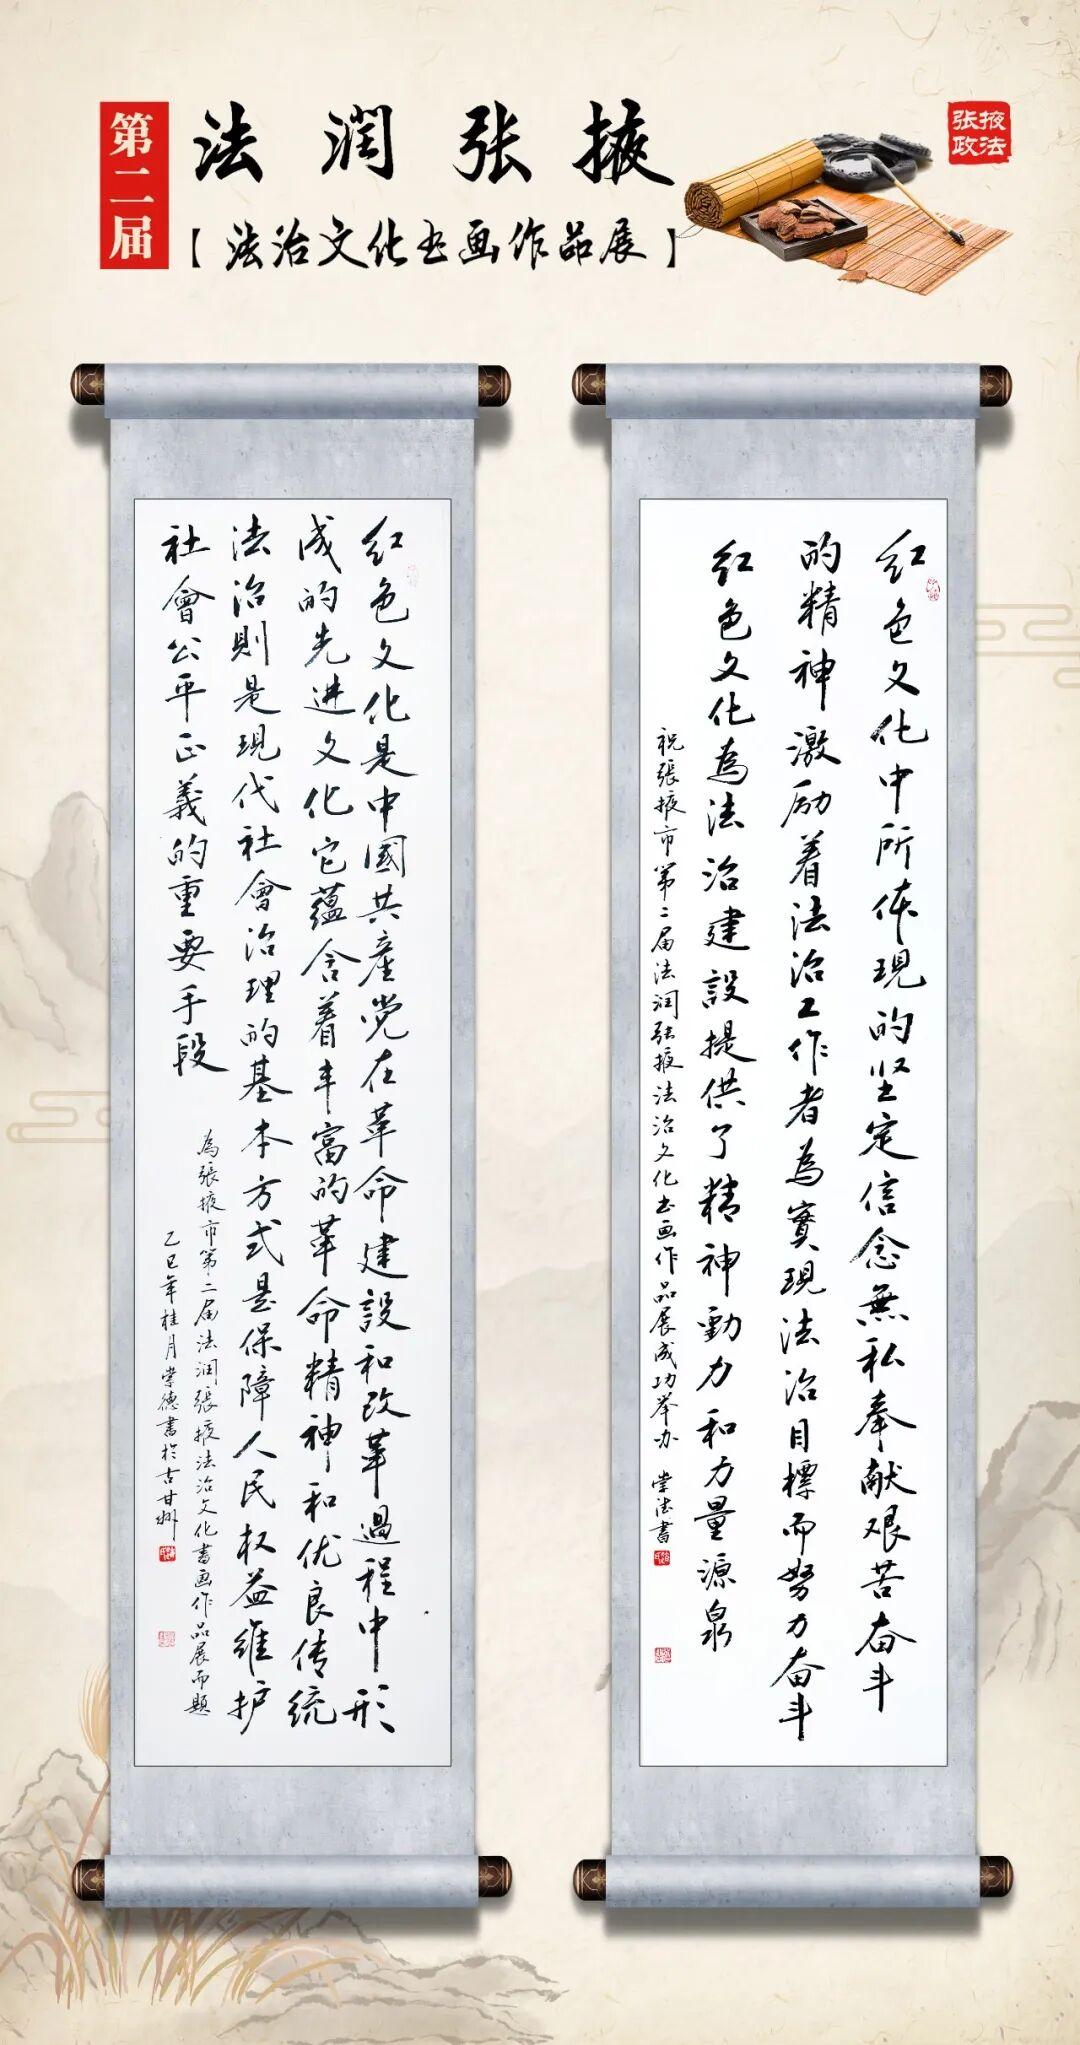 第二届
法润张掖
【法治文化书画作品展】
张掖
政法
红色文化中所体現的坚定信念無私奉献艰苦奋斗
的精神激励着法治工作者為實現法治目標而努力奋斗
红色文化為法治建設提供了精神動力和力量源泉
祝張掖市第二届法润张掖法治文化书画作品展成功举办 崇德書
红色文化是中國共產党在革命建設和改革過程中形
成的先进文化它蕴含着丰富的革命精神和优良传统
法治則是現代社會治理的基本方式是保障人民权益维护
社會公平正義的重要手段
為張掖市第二届法润張掖法治文化書画作品展而题
乙巳年桂月崇德書於古甘州